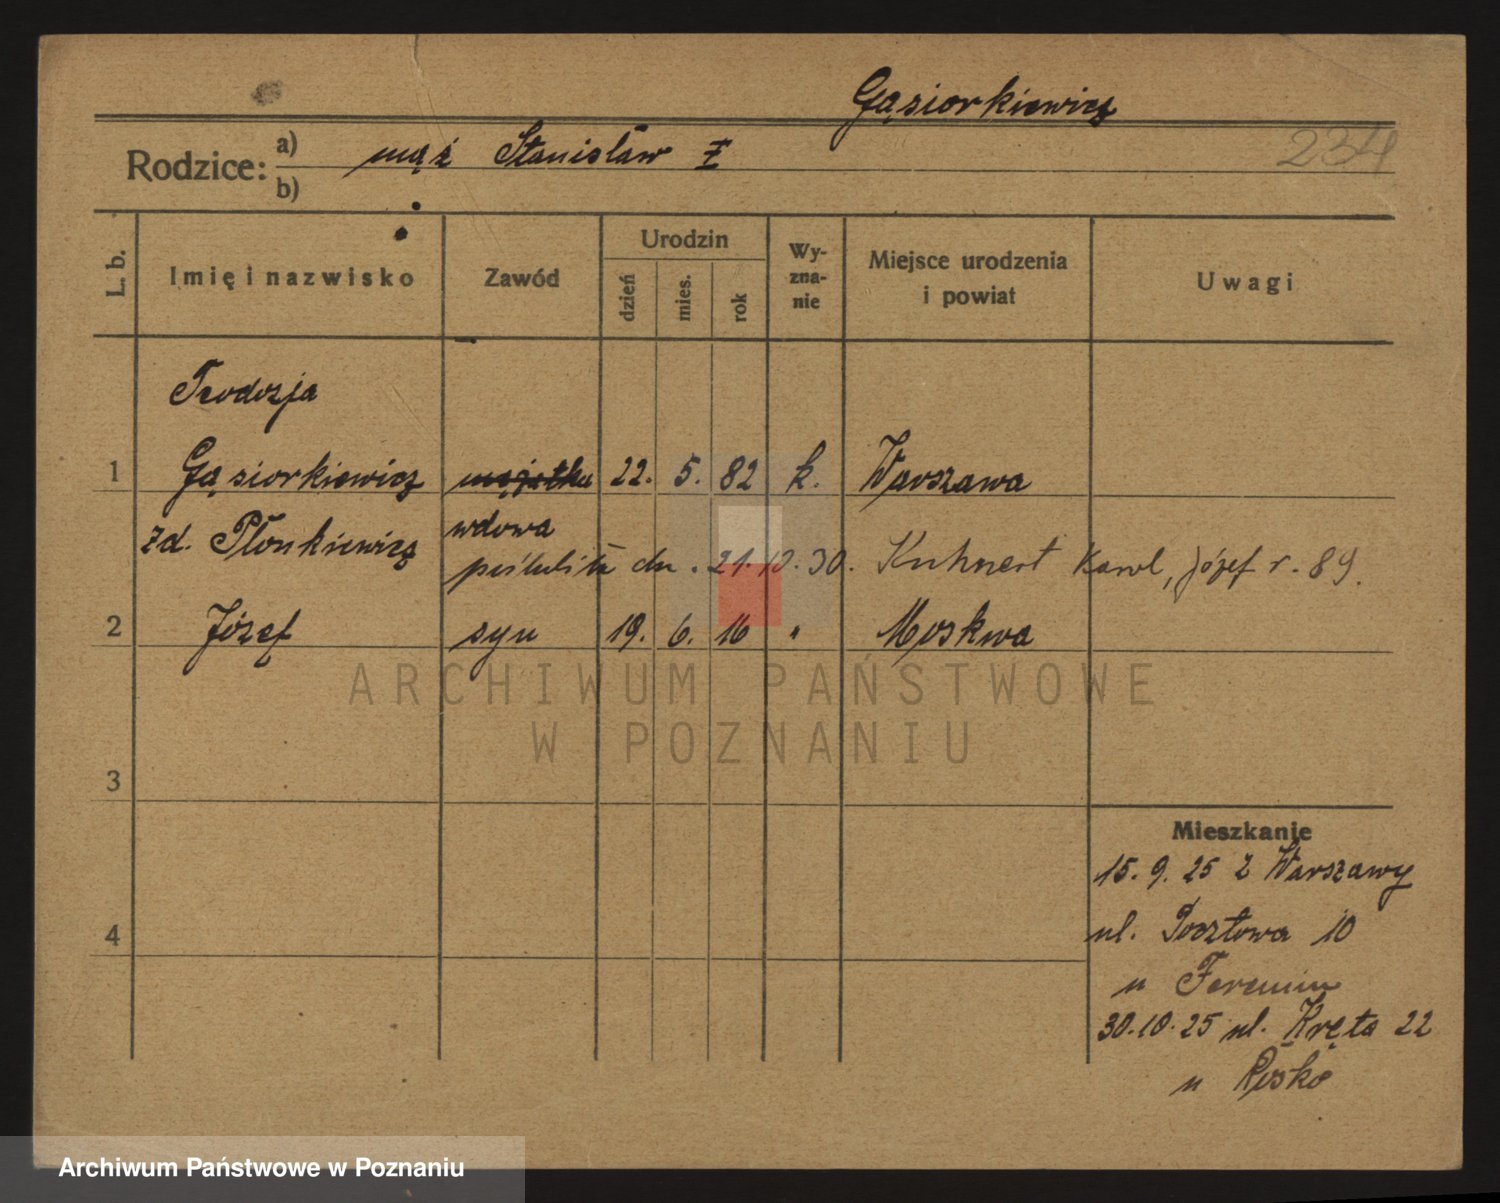 Gąsiorkiewicz
234
Rodzice: a) mąż Stanisław
b)
L. b. Imię i nazwisko Zawód Urodzin dzień mies. rok Wy-zna-nie Miejsce urodzenia i powiat Uwagi
Teodozja
1 Gąsiorkiewicz 22. 5. 82 k. Warszawa
zd. Płonkiewicz wdowa
poślubiła dn. 21.10.30. Kuhnert Karol, Józef r. 89.
2 Józef syn 19. 6. 16 " Moskwa
ARCHIWUM PAŃSTWOWE
W POZNANIU
3
Mieszkanie
15. 9. 25 z Warszawy
4
ul. Pocztowa 10
u
30.10.25 ul. Kręta 22
u
Archiwum Państwowe w Poznaniu